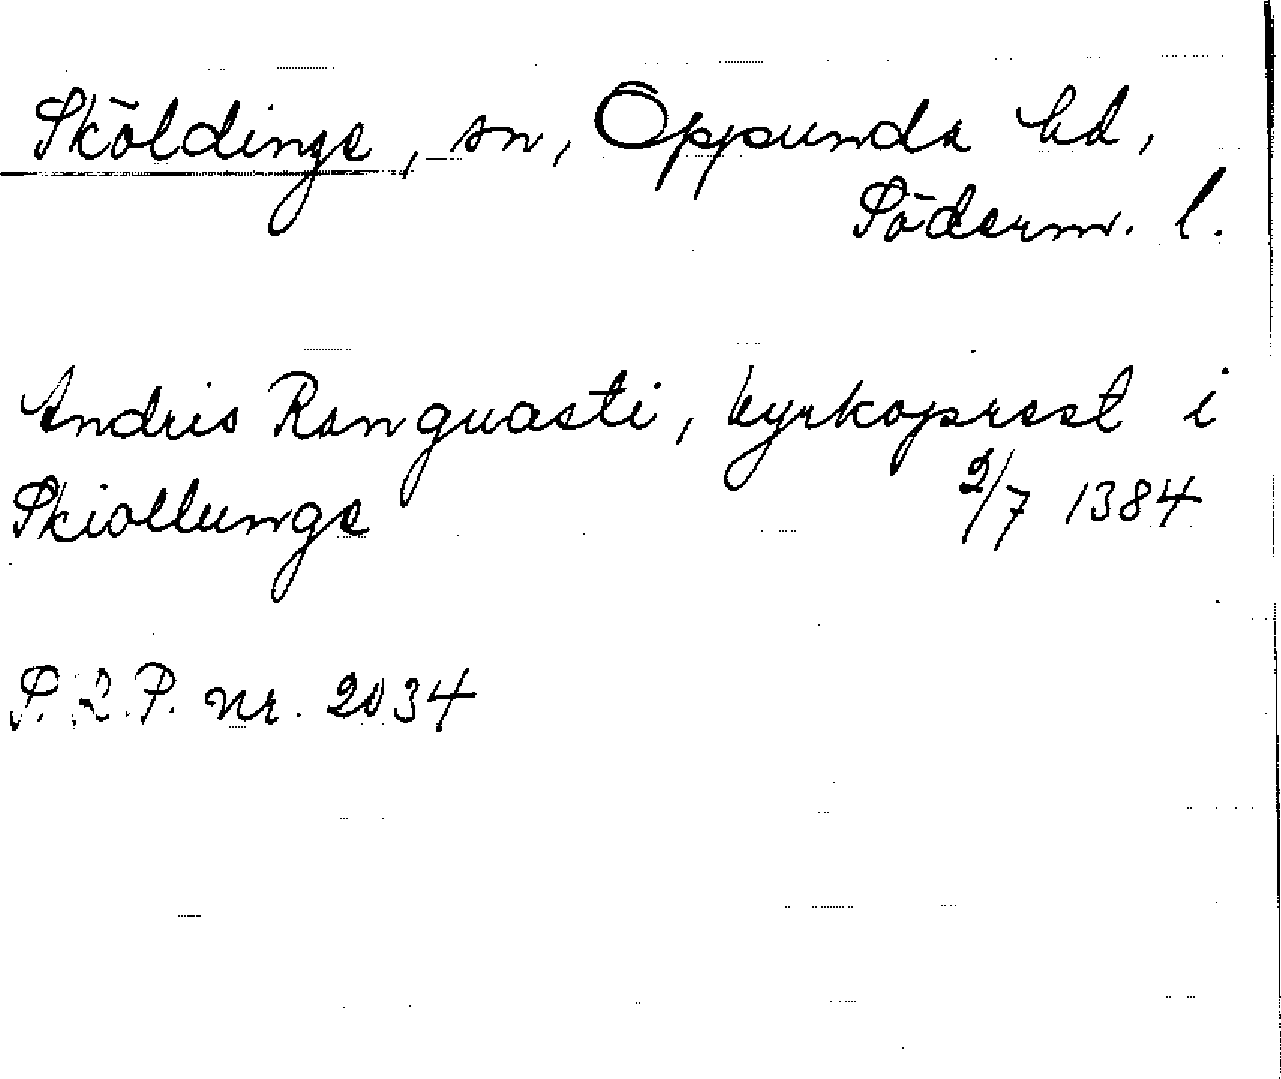 Sköldinge, sn, Oppunda hd,
Söderm. l.
Andris Ranguasti, kyrkoprest i
Skiollunge 2/7 1384
S.R.P. nr. 2034